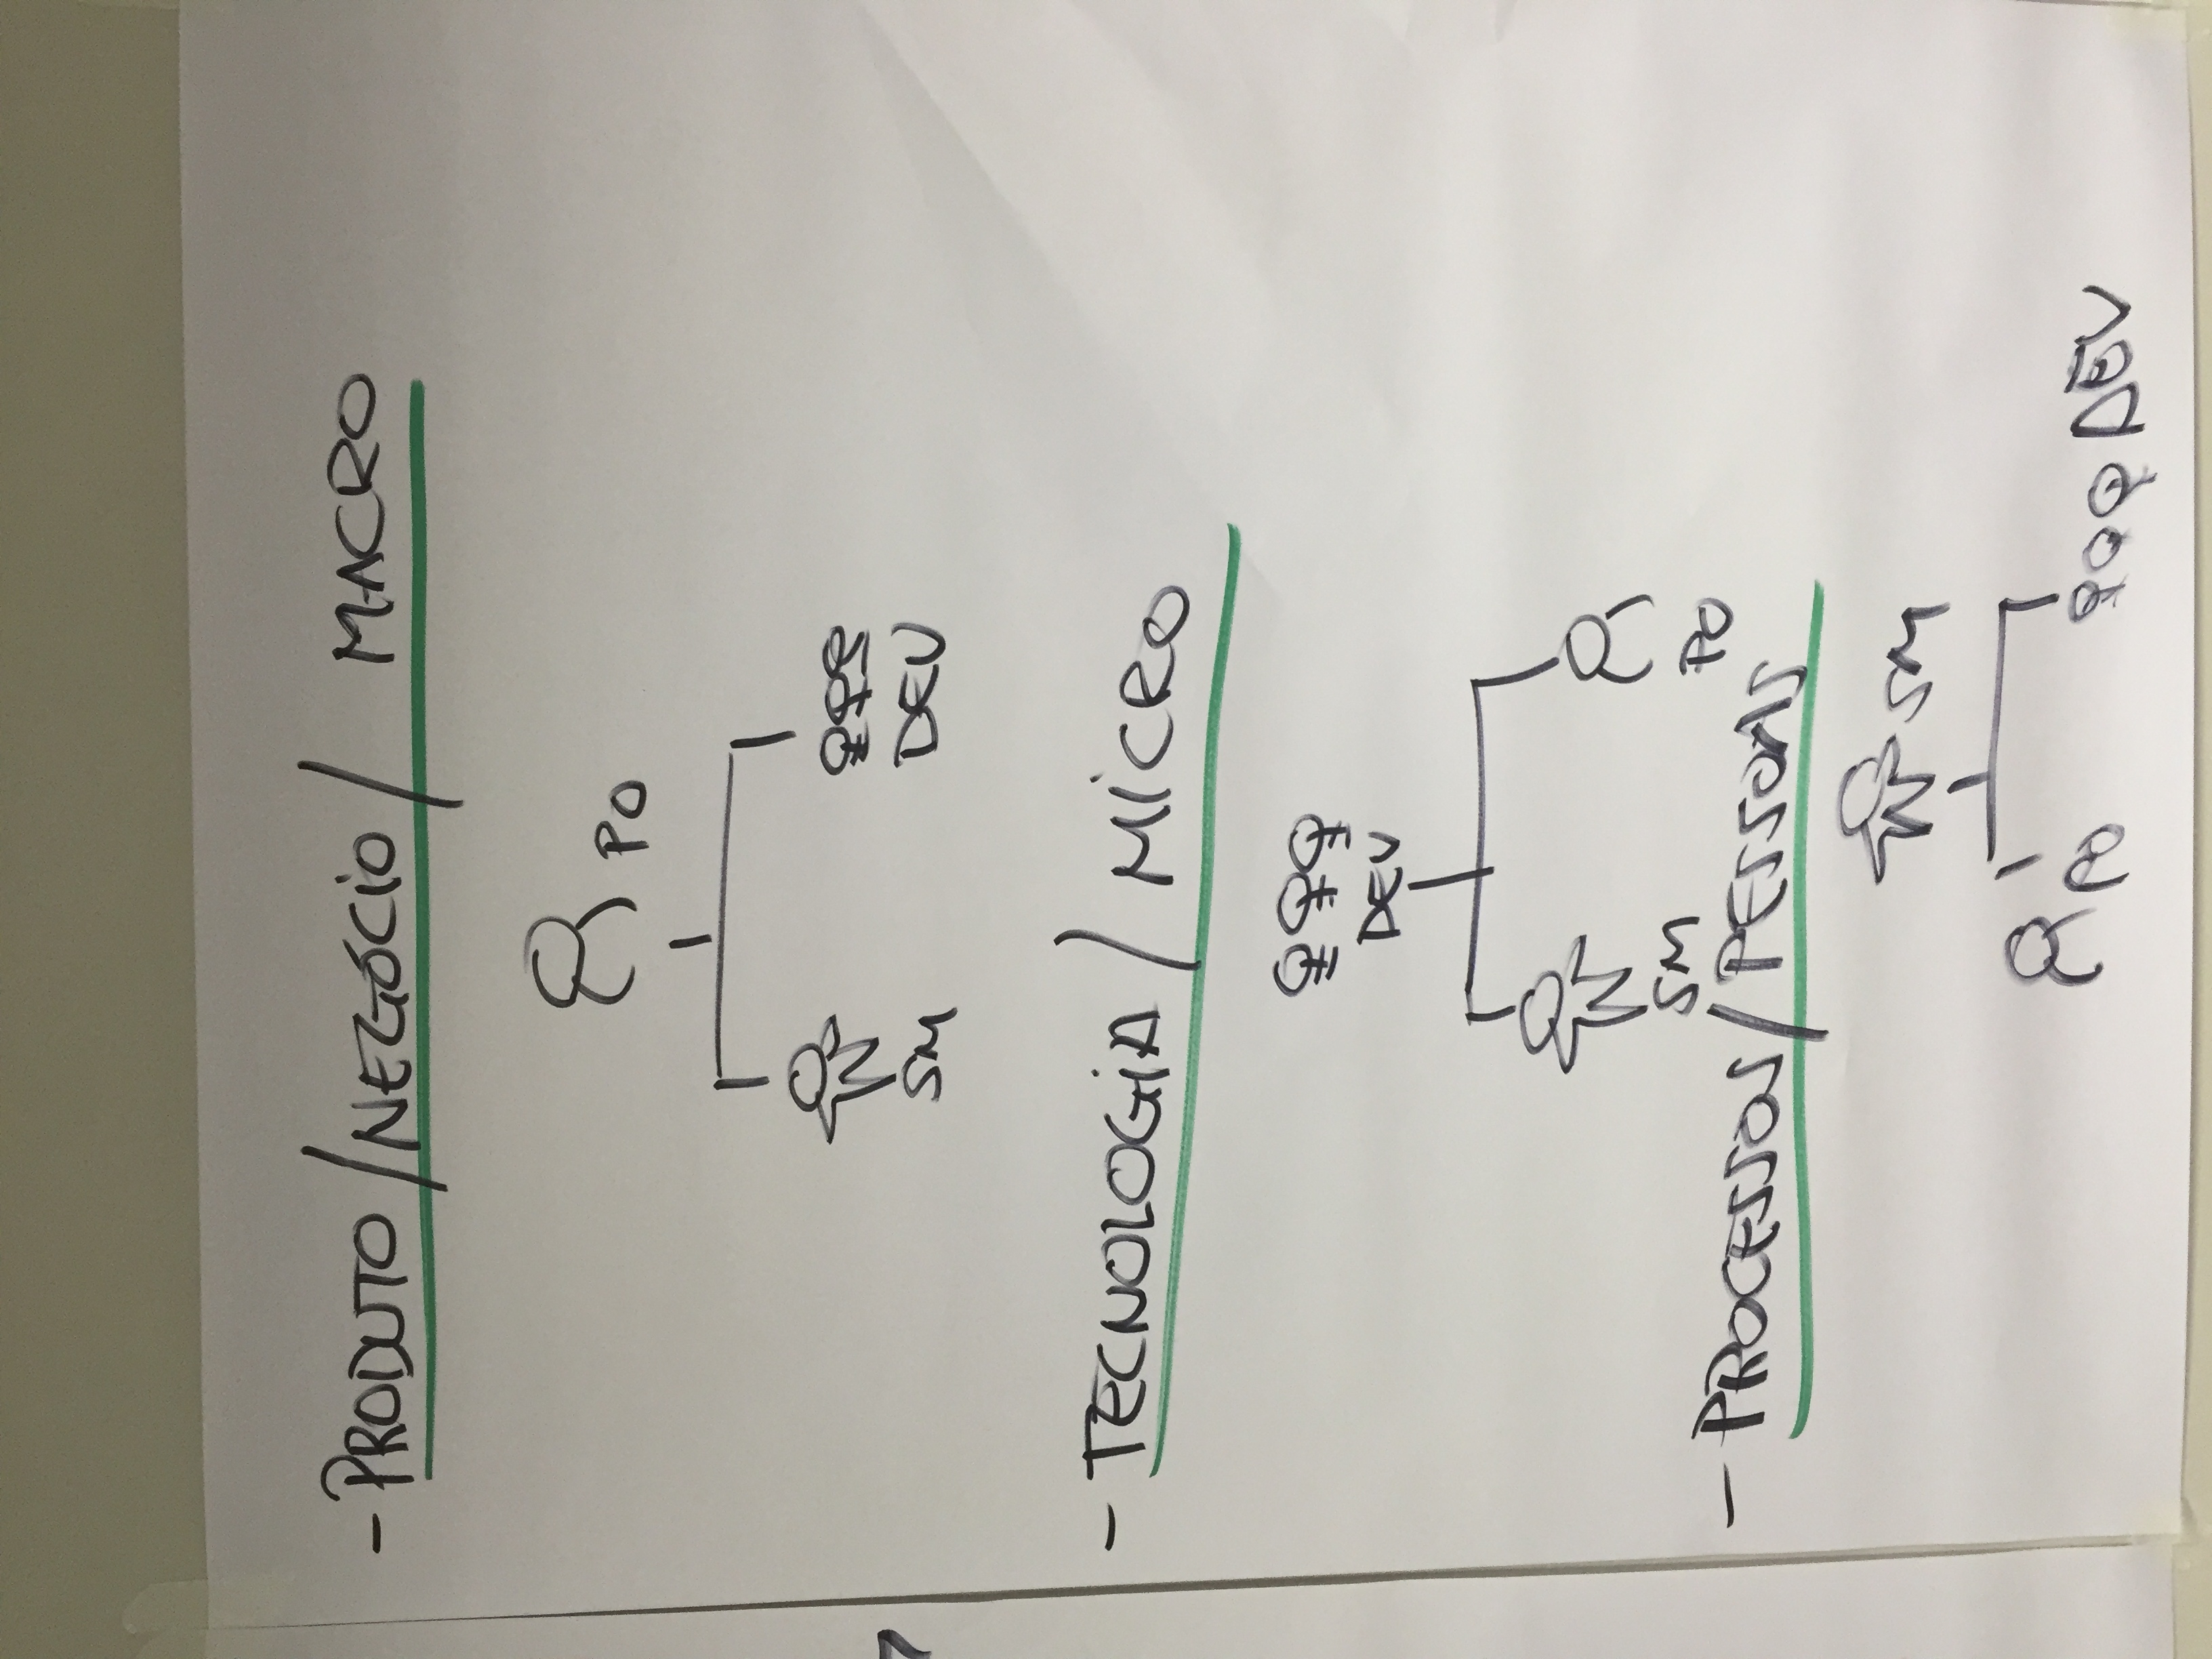 - PRODUTO / NEGÓCIO / MACRO
PO
SM DEV
- TECNOLOGIA / MICRO
DEV
SM PO
- PROCESSOS / PESSOAS
SM
PO DEV